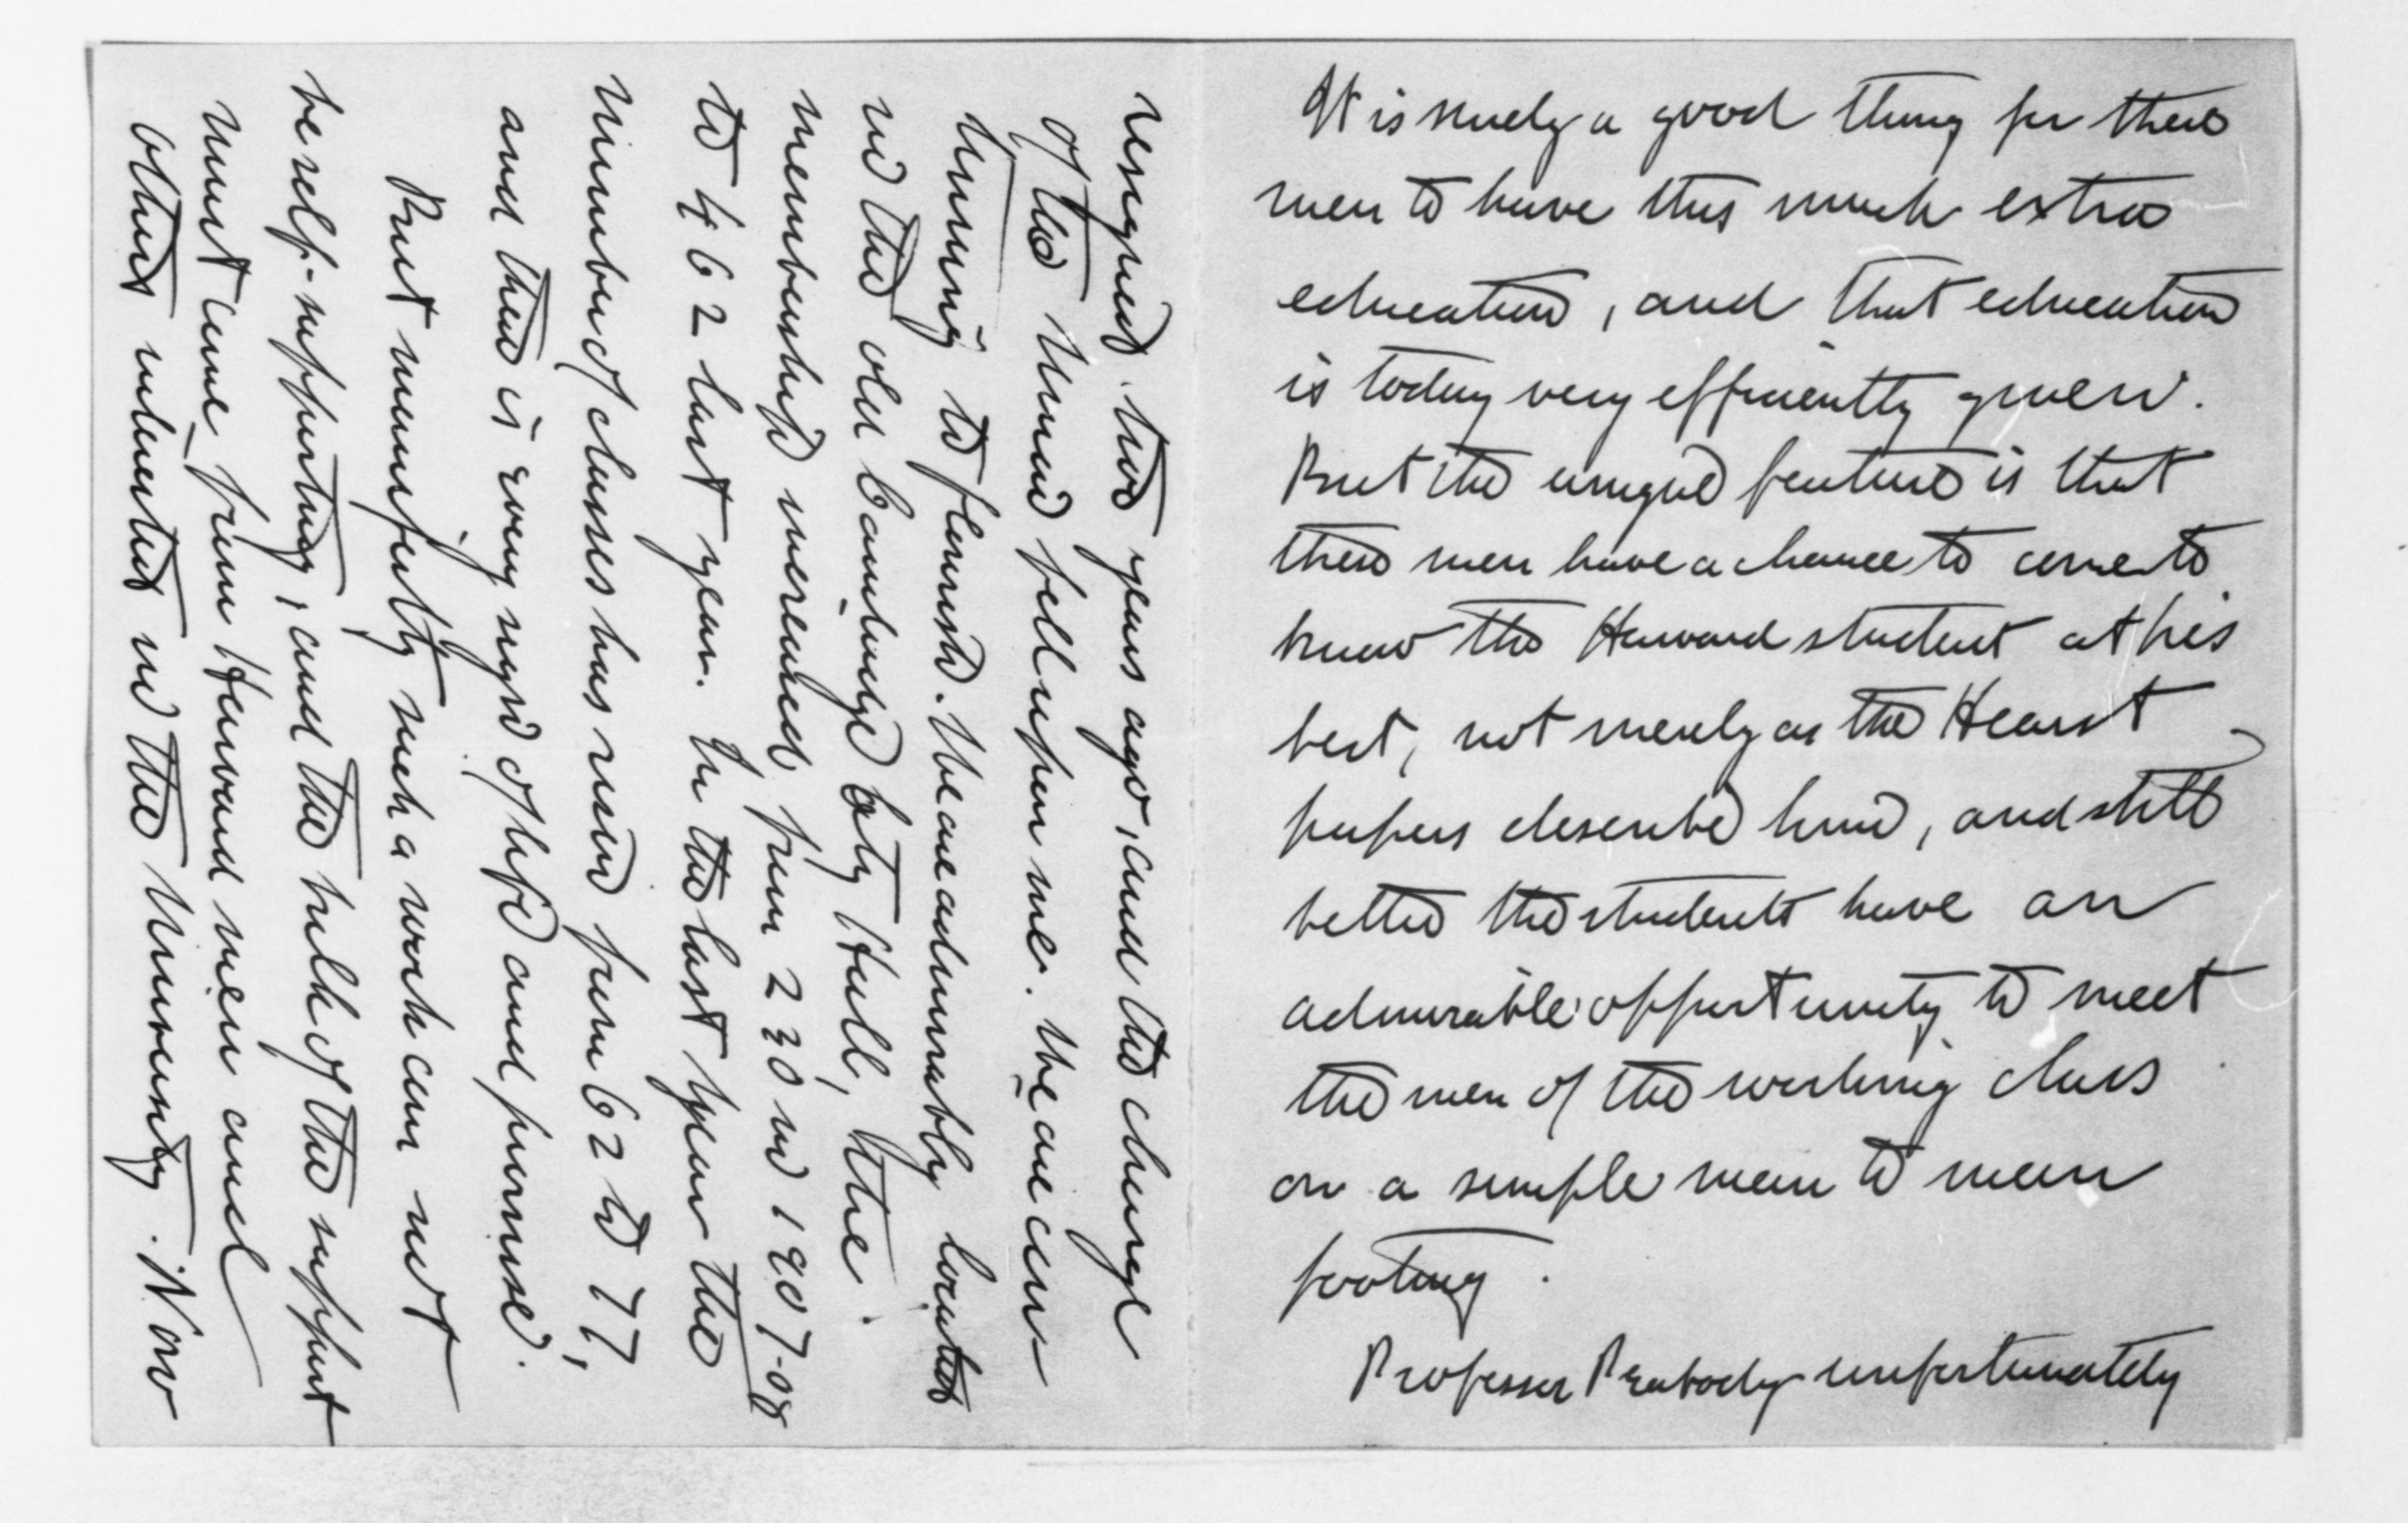 It is surely a good thing for these
men to have this much extra
education, and that education
is today very efficiently given.
But the unique feature is that
these men have a chance to come to
know the Harvard student at his
best, not merely as the Hearst
papers describe him, and still
better the students have an
admirable opportunity to meet
the men of the working class
on a simple man to man
footing.
Professor Peabody unfortunately
resigned two years ago, and the charge
of the Union fell upon me. We are certain
Union to flourish. We are admirably located
in the old Cambridge City Hall, the
membership increased from 230 in 1907-08
to 462 last year. In the last year the
number of classes has risen from 62 to 77,
and there is every sign of life and promise.
But manifestly such a work can not
be self-supporting, and the bulk of the support
must come from Harvard men and
others interested in the University. Now